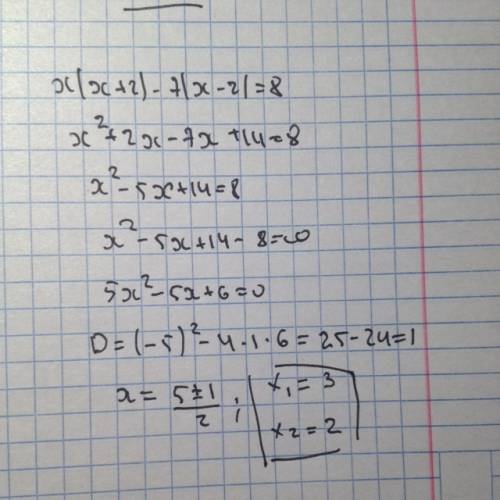 x(x+2)-7(x-2)=8
x²+2x-7x+14=8
x²-5x+14=8
x²-5x+14-8=0
5x²-5x+6=0
D=(-5)²-4·1·6=25-24=1
x=(5±1)/2; x₁=3
x₂=2